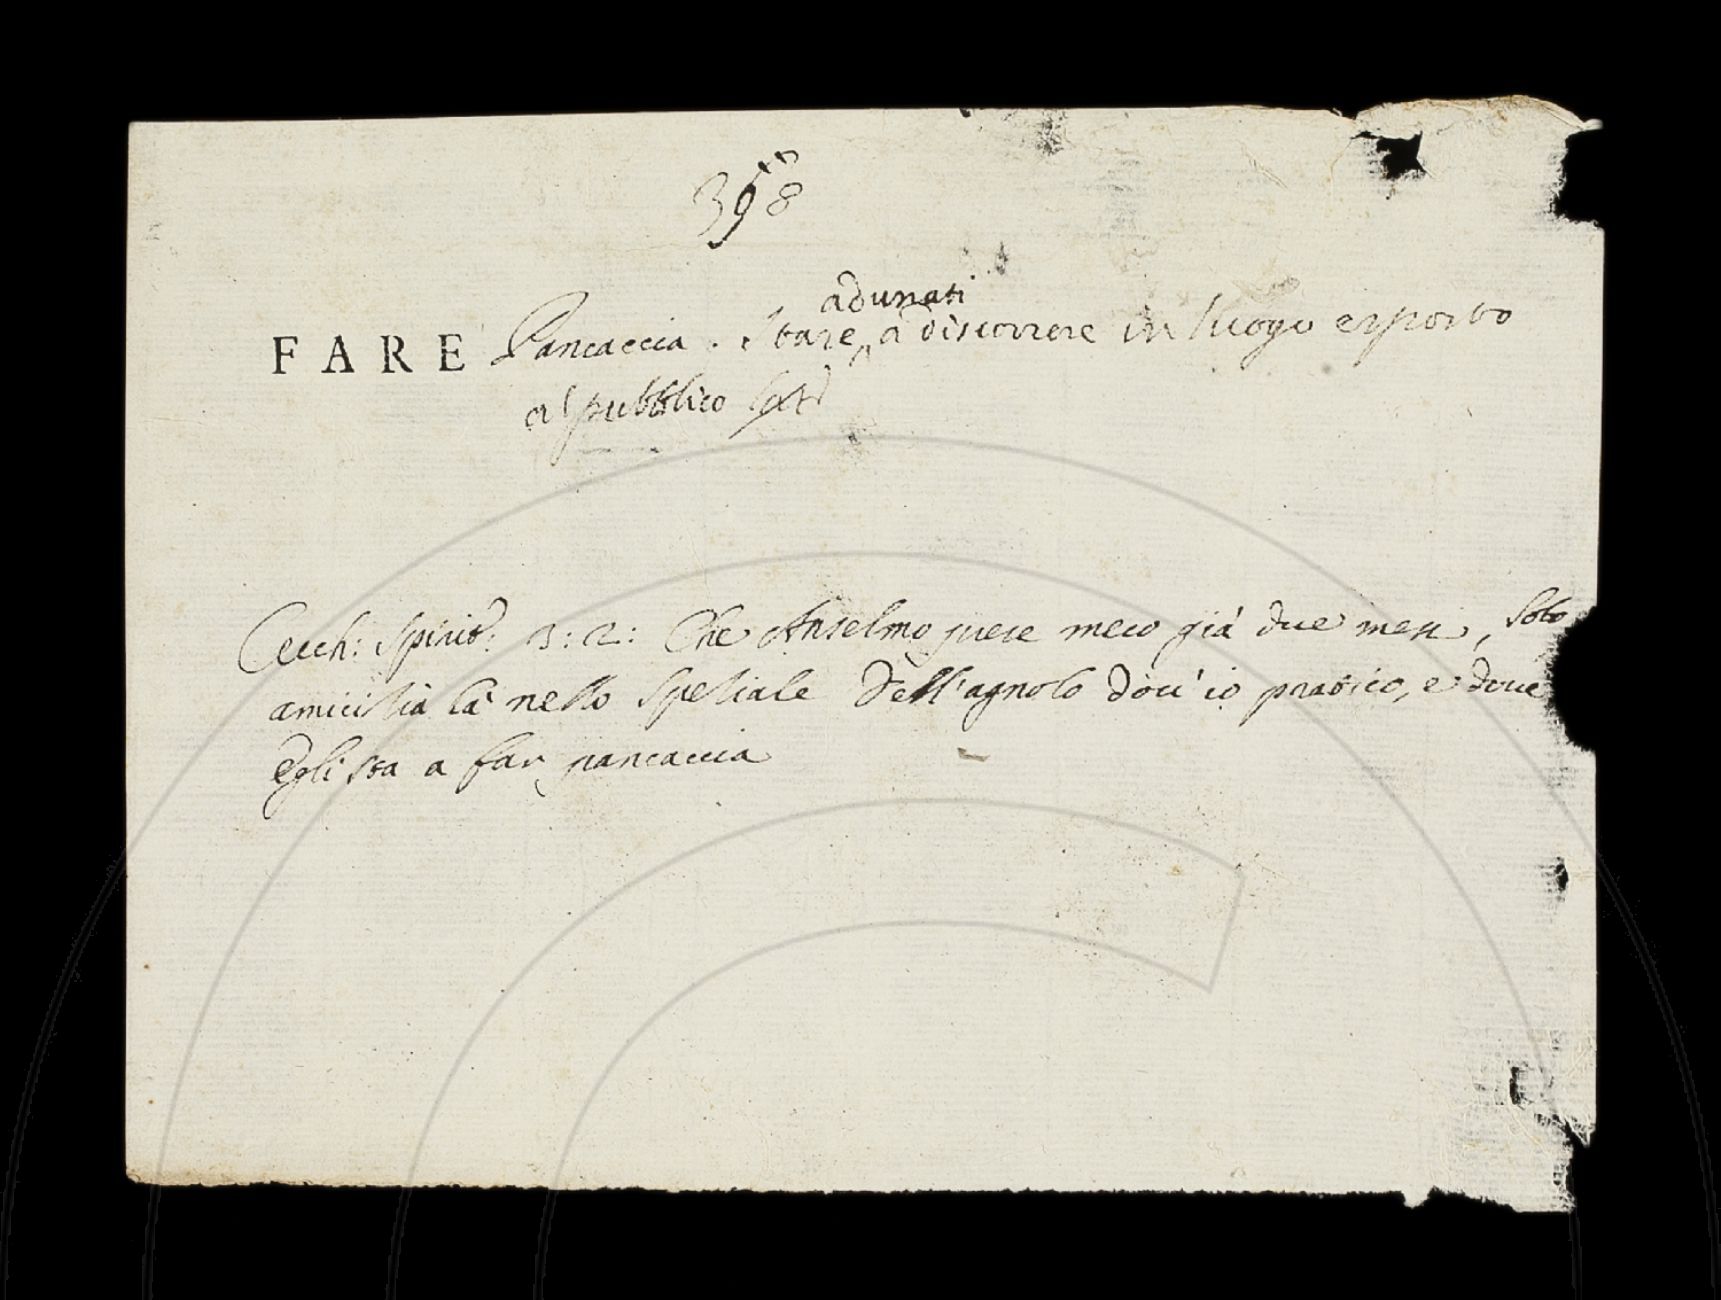 398
adunati
FARE Pancaccia. Stare, a discorrere in luogo esposto
al pubblico
Cecch: Spirit: 3:2: Che Anselmo fece meco già due mesi, sotto
amicitia là nello Spetiale dell'agnolo dou'io pratico, e doue
Egli sta a far pancaccia